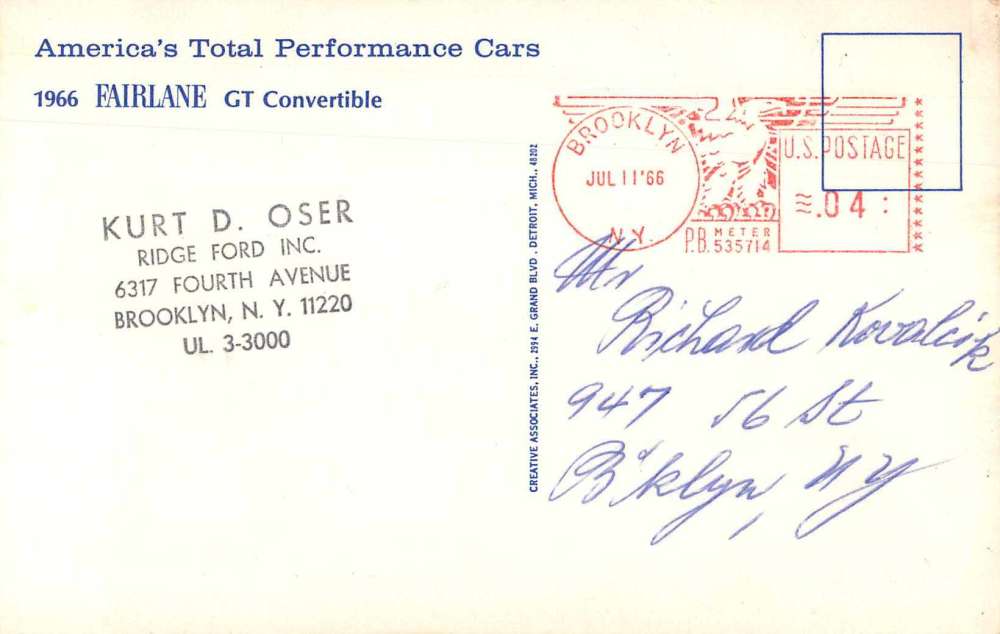 America's Total Performance Cars
1966 FAIRLANE GT Convertible
KURT D. OSER
RIDGE FORD INC.
6317 FOURTH AVENUE
BROOKLYN, N. Y. 11220
UL. 3-3000
CREATIVE ASSOCIATES, INC., 2994 E. GRAND BLVD., DETROIT, MICH., 48202
BROOKLYN
JUL 11 '66
N.Y.
P.B. METER
535714
U.S. POSTAGE
.04
Mr
Richard Kovalcik
947 56 St
B'klyn, NY